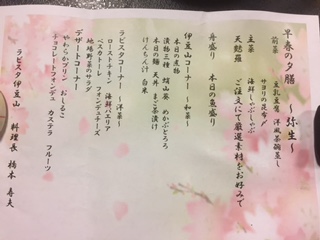 早春の夕膳 〜弥生〜
前菜 豆乳豆腐 洋風茶碗蒸し
サヨリの昆布〆
主菜 海鮮しゃぶしゃぶ
天麩羅 ご注文にて厳選素材をお好みで
舟盛り 本日の魚盛り
伊豆山コーナー 〜和菜〜
本日の煮物
漬物三種 めかぶとろろ
本日の麺 天丼 まご茶漬け
けんちん汁 白米
ラビスタコーナー 〜洋菜〜
ローストチキン 海鮮パエリア
ペスカトーレ フォンデュチーズ
地場野菜のサラダ
デザートコーナー
やわらかプリン おしるこ
チョコレートフォンデュ カステラ フルーツ
ラビスタ伊豆山 料理長 橋本 寿夫